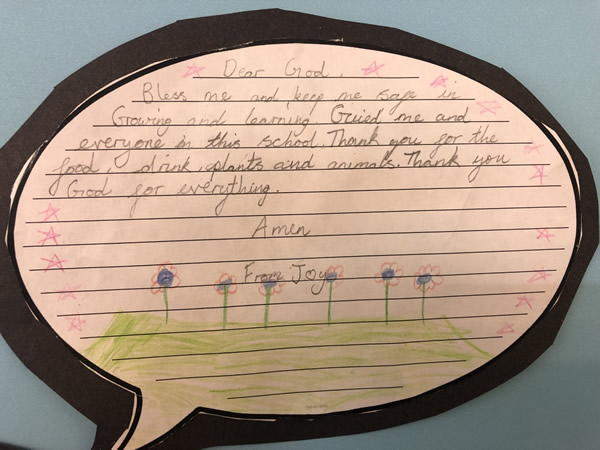 Dear God,
Bless me and keep me safe in
Growing and learning. Guied me and
everyone in this school. Thank you for the
food, drink, plants and animals. Thank you
God for everything.
Amen
From Joy